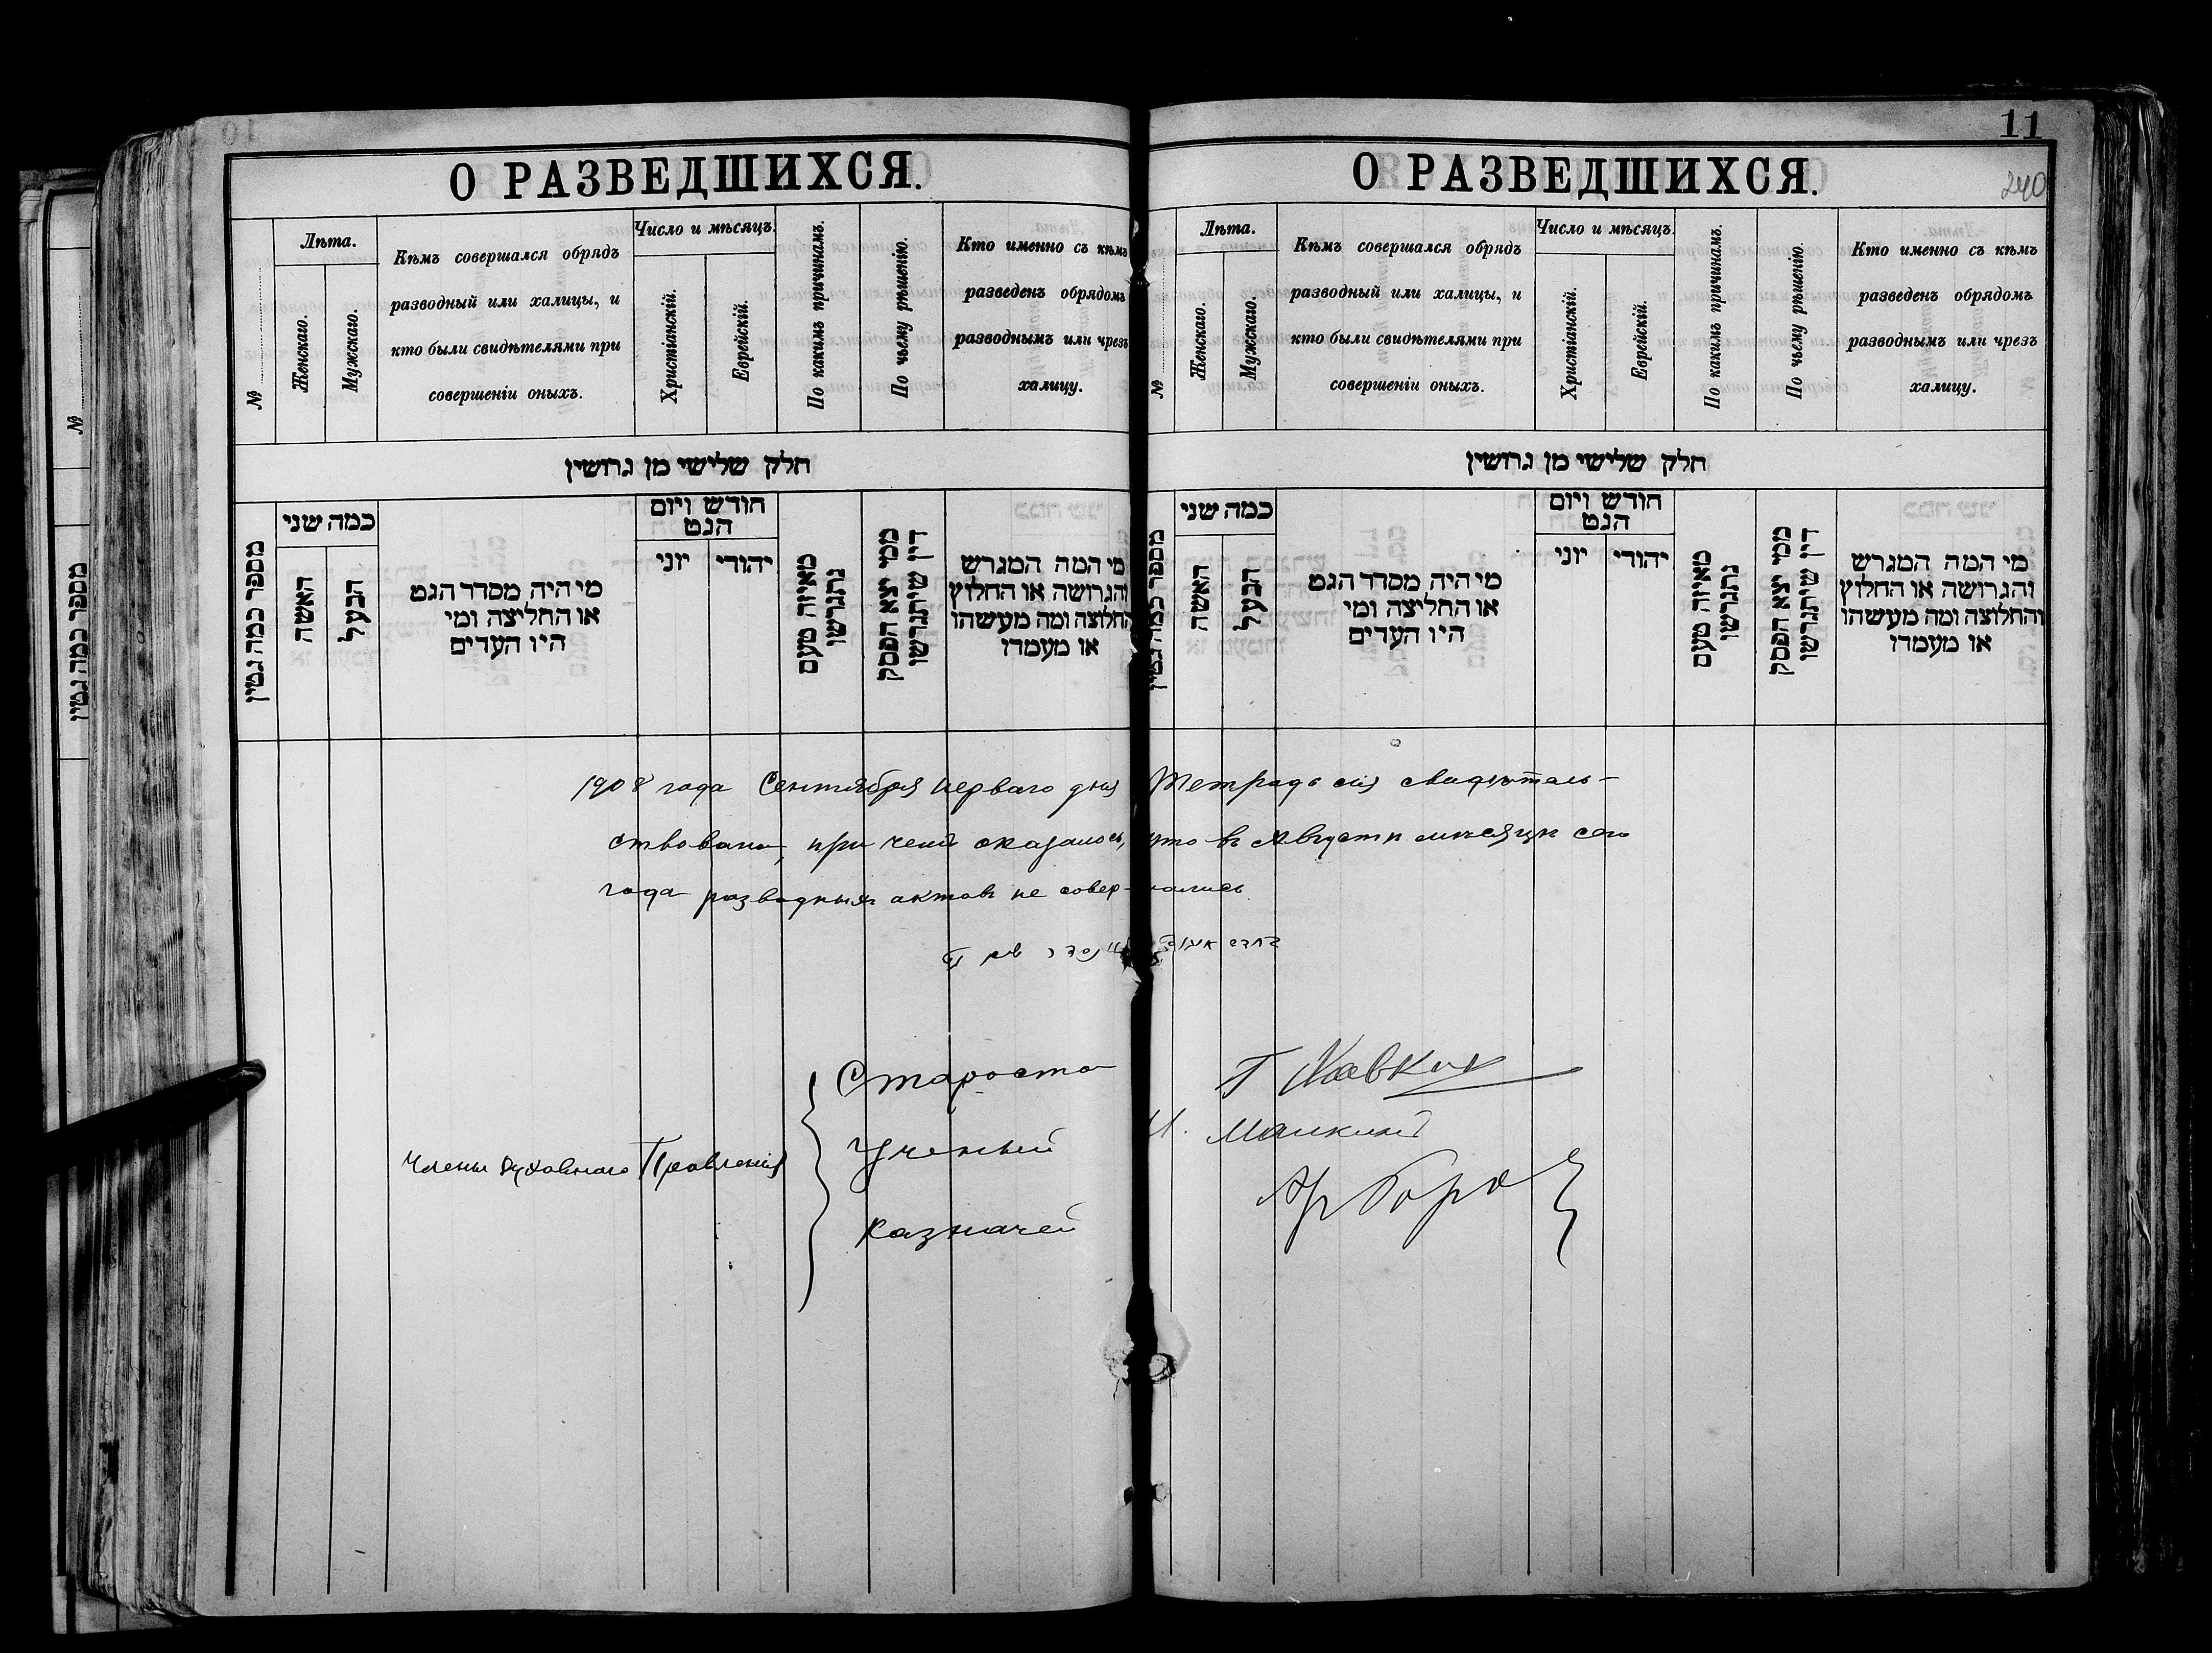 11
240
О РАЗВЕДШИХСЯ.
№
Лѣта.
Женскаго.
Мужскаго.
Кѣмъ совершался обрядъ
разводный или халицы, и
кто были свидѣтелями при
совершеніи оныхъ.
Число и мѣсяцъ.
Христіанскій.
Еврейскій.
По какимъ причинамъ.
По чьему рѣшенію.
Кто именно съ кѣмъ
разведенъ обрядомъ
разводнымъ или чрезъ
халицу.
חלק שלישי מן גרושין
מספר כמה גטין
כמה שני
האשה
הבעל
מי היה מסדר הגט
או החליצה ומי
היו העדים
חודש ויום
הגט
יוני
יהודי
מאיזה טעם
נתגרשו
ממי יצא הפסק
דין שיתגרשו
מי המה המגרש
והגרושה או החלוץ
והחלוצה ומה מעשהו
או מעמדו
О РАЗВЕДШИХСЯ.
№
Лѣта.
Женскаго.
Мужскаго.
Кѣмъ совершался обрядъ
разводный или халицы, и
кто были свидѣтелями при
совершеніи оныхъ.
Число и мѣсяцъ.
Христіанскій.
Еврейскій.
По какимъ причинамъ.
По чьему рѣшенію.
Кто именно съ кѣмъ
разведенъ обрядомъ
разводнымъ или чрезъ
халицу.
חלק שלישי מן גרושין
מספר כמה גטין
כמה שני
האשה
הבעל
מי היה מסדר הגט
או החליצה ומי
היו העדים
חודש ויום
הגט
יוני
יהודי
מאיזה טעם
נתגרשו
ממי יצא הפסק
דין שיתגרשו
מי המה המגרש
והגרושה או החלוץ
והחלוצה ומה מעשהו
או מעמדו
№
מספר כמה גטין
1908 года Сентября перваго дня Тетрадь сія свидѣтель-
ствована, при чемъ оказалось, что въ Августѣ мѣсяцѣ сего
года разводныхъ актовъ не совершались
Члены Духовнаго Правленія
Староста
Ученый
Казначей